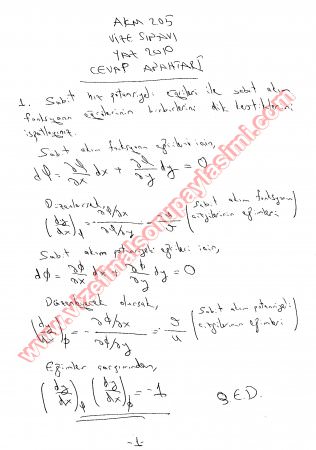 AKM 205
VİZE SINAVI
YAZ 2010
CEVAP ANAHTARI
1. Sabit hız potansiyeli eğrileri ile sabit akım
fonksiyonu eğrilerinin birbirlerini dik kestiklerini
ispatlayınız.
Sabit akım fonksiyonu eğrileri için,
dψ = ∂ψ/∂x dx + ∂ψ/∂y dy = 0
(dy/dx)ψ = - ∂ψ/∂x / ∂ψ/∂y
(Sabit akım fonksiyonu
çizgilerinin eğimleri)
Sabit akım potansiyeli eğrileri için,
dϕ = ∂ϕ/∂x dx + ∂ϕ/∂y dy = 0
olursak,
(dy/dx)ϕ = - ∂ϕ/∂x / ∂ϕ/∂y
(Sabit akım potansiyeli
çizgilerinin eğimleri)
Eğimler çarpımından,
(dy/dx)ψ (dy/dx)ϕ = -1 Q.E.D.
-1-
www.vizefinalsorupaylasimi.com